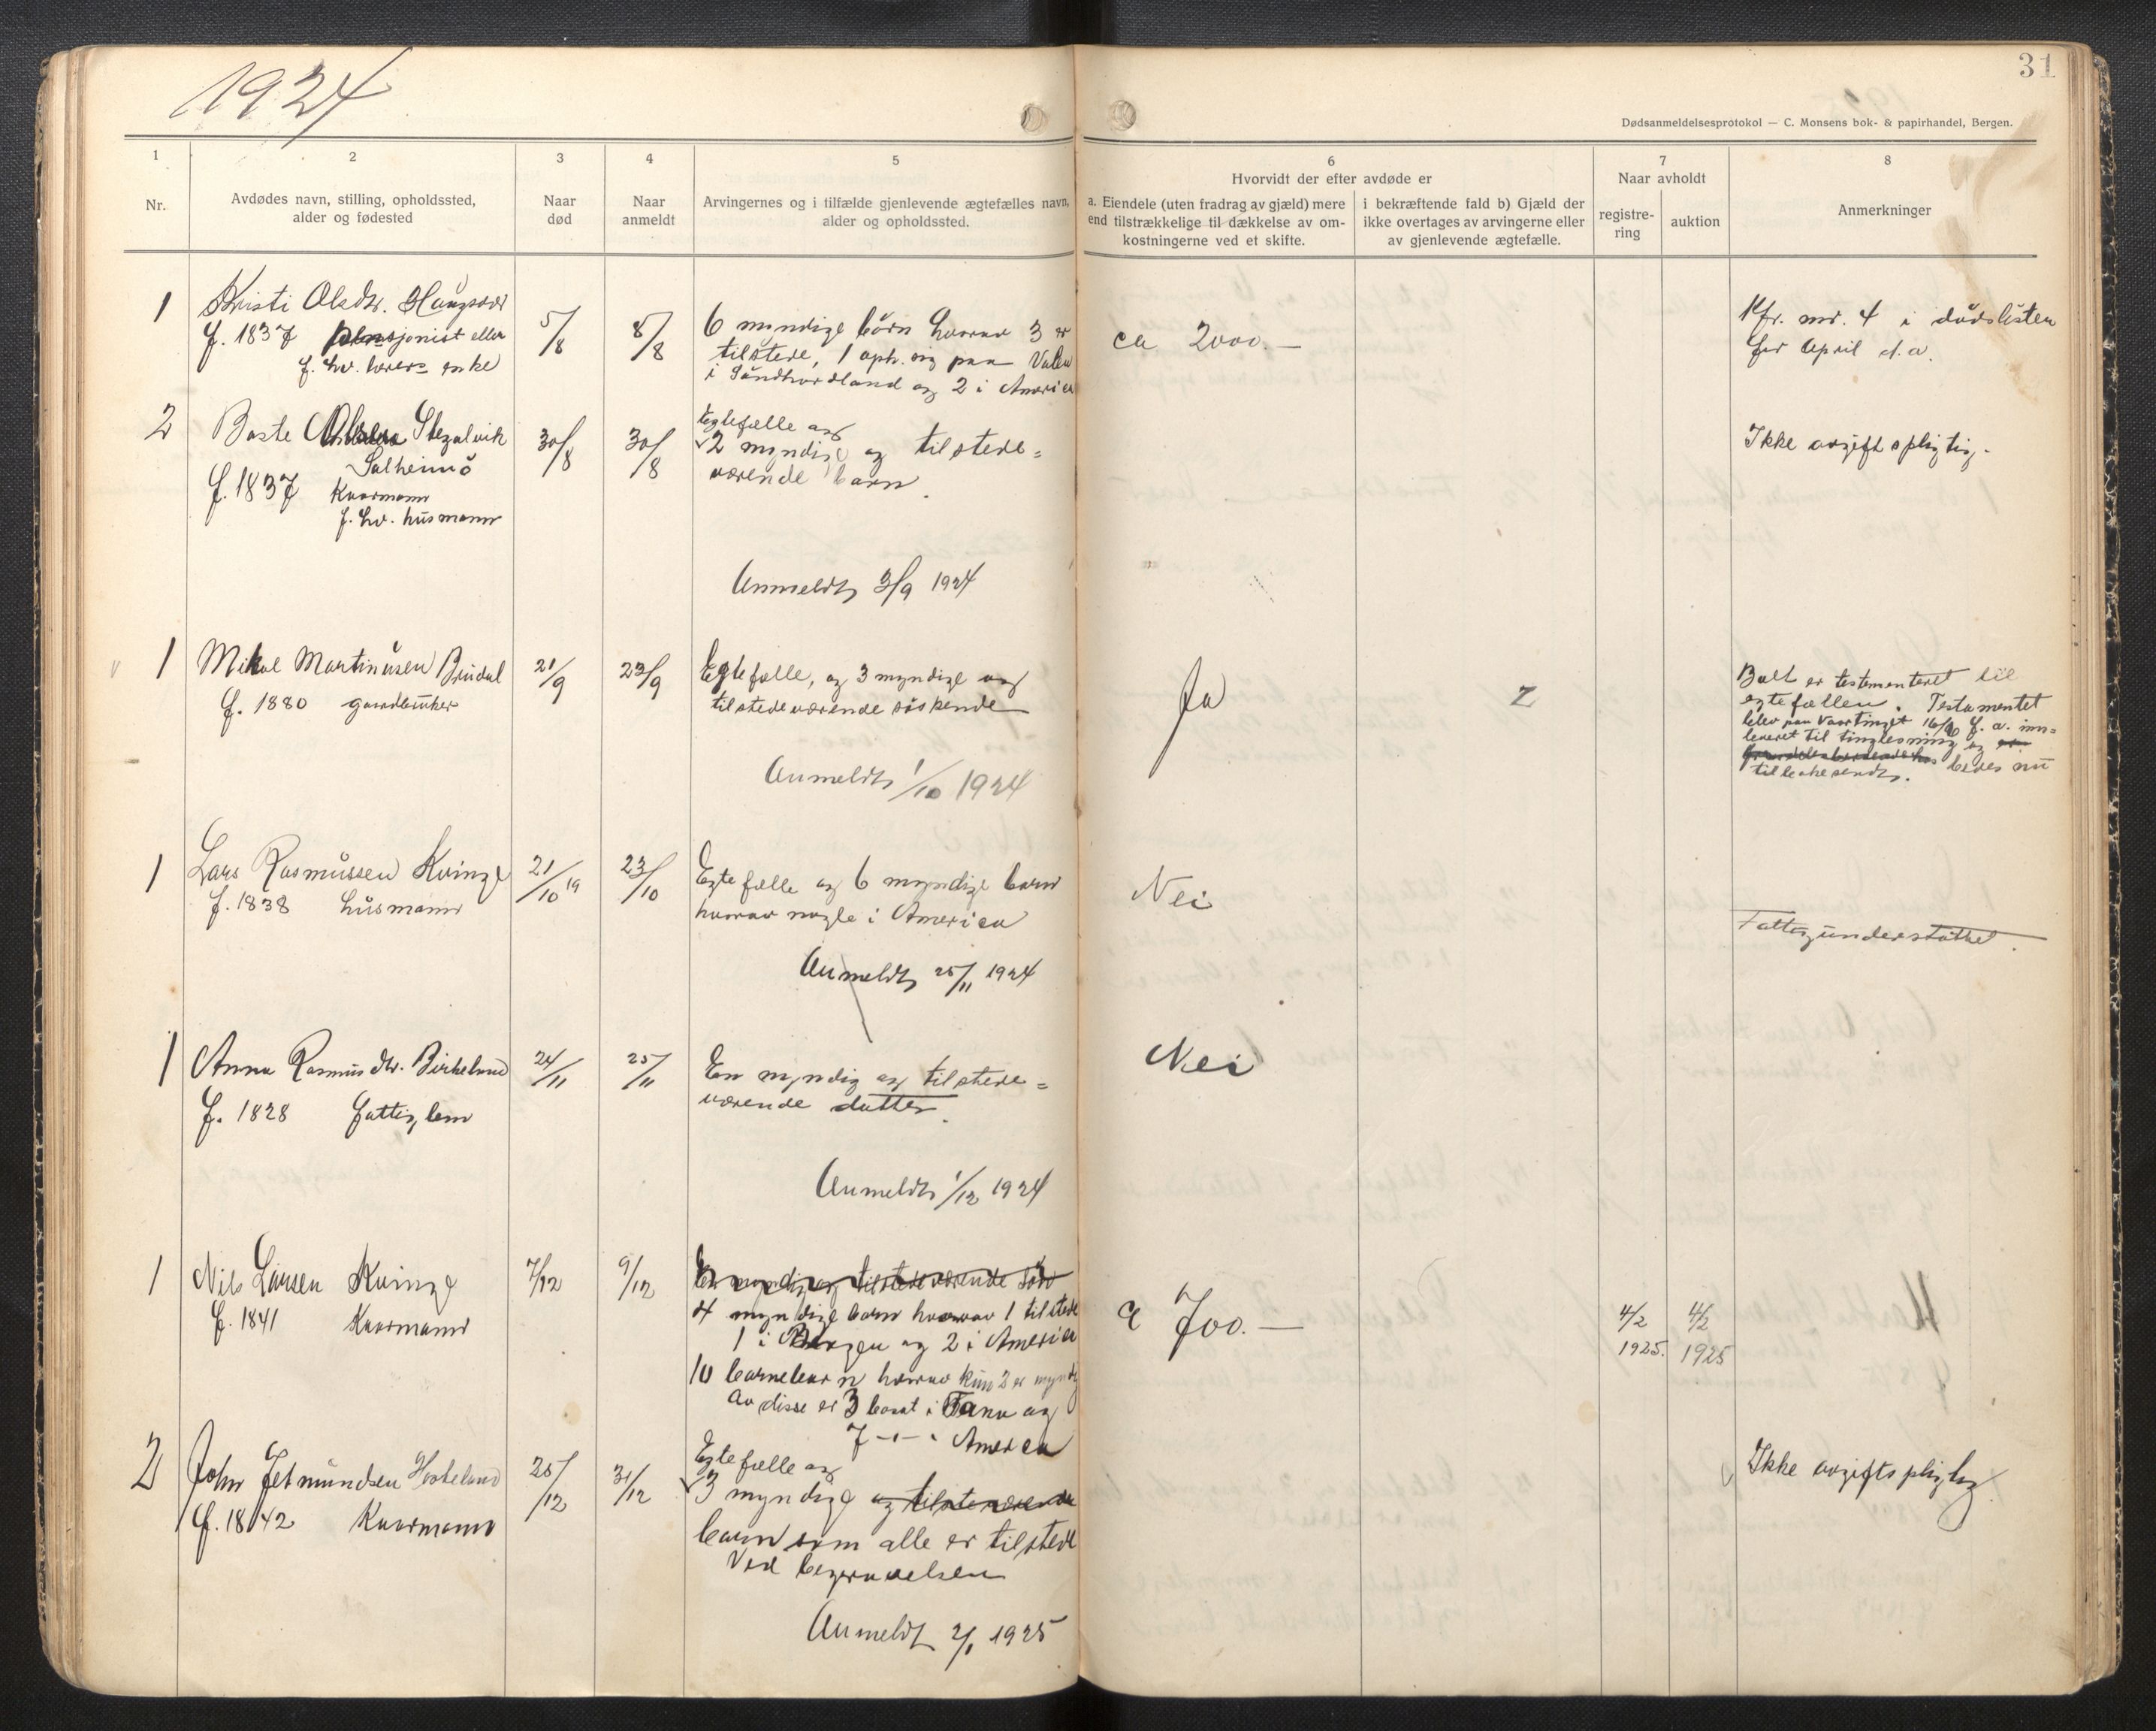 1924
31
Dødsanmeldelsesprotokol — C. Monsens bok- & papirhandel, Bergen.
1
Nr.
2
Avdødes navn, stilling, opholdssted,
alder og fødested
3
Naar
død
4
Naar
anmeldt
5
Arvingernes og i tilfælde gjenlevende ægtefælles navn,
alder og opholdssted.
6
Hvorvidt der efter avdøde er
a. Eiendele (uten fradrag av gjæld) mere
end tilstrækkelige til dækkelse av om-
kostningerne ved et skifte.
i bekræftende fald b) Gjæld der
ikke overtages av arvingerne eller
av gjenlevende ægtefælle.
7
Naar avholdt
registre-
ring
auktion
8
Anmerkninger
1
Kristi Olsdtr.
f. 1837 pensjonist eller
f. hv. lærers enke
5/8
8/8
6 myndige börn hvorav 3 er
tilstede, 1 oph. sig paa Valen
i Søndhordland og 2 i America
ca 2000.—
Kfr. nr. 4 i dødslisten
for April d.a.
2
Baste
Solheimö
f. 1837 Kaarmann
f. hv. husmann
30/8
30/8
Egtefælle og
2 myndige og tilstede=
værende barn.
Ikke avgiftspligtig.
Anmeldt 3/9 1924
1
Mikal Martinusen Brudal
f. 1880 gaardbruker
21/9
23/9
Egtefælle, og 3 myndige og
tilstedeværende søskende
Ja
Boet er testamenteret til
egtefællen. Testamentet
blev paa Vaartinget 16/6 f. a. inn=
leveret til tinglesning og
bedes nu
tilbakesendt.
Anmeldt 1/10 1924
1
Lars Rasmussen Kvinge
f. 1838 husmann
21/10 19
23/10
Egtefælle og 6 myndige barn
hvorav nogle i America
Nei
Fattigunderstøttet.
Anmeldt 25/11 1924
1
Anna Rasmusdtr. Birkeland
f. 1828 fattiglem
24/11
25/11
En myndig og tilstede=
værende datter.
Nei
Anmeldt 1/12 1924
1
Nils Larsen Kvinge
f. 1841 Kaarmann
7/12
9/12
En myndig og tilstedeværende søn
4 myndige barn hvorav 1 tilstede
1 i Bergen og 2 i America
10 barnebarn hvorav kun 2 er myndig
Av disse er 3 bosat i Fana og
7 -"- i America
700.—
4/2
1925.
4/2
1925
2
John Jetmundsen Hosteland
f. 1842 Kaarmann
25/12
31/12
Egtefælle og
3 myndige og tilstedeværende
barn som alle er tilstede
ved begravelsen
Ikke avgiftspligtig
Anmeldt 2/1 1925